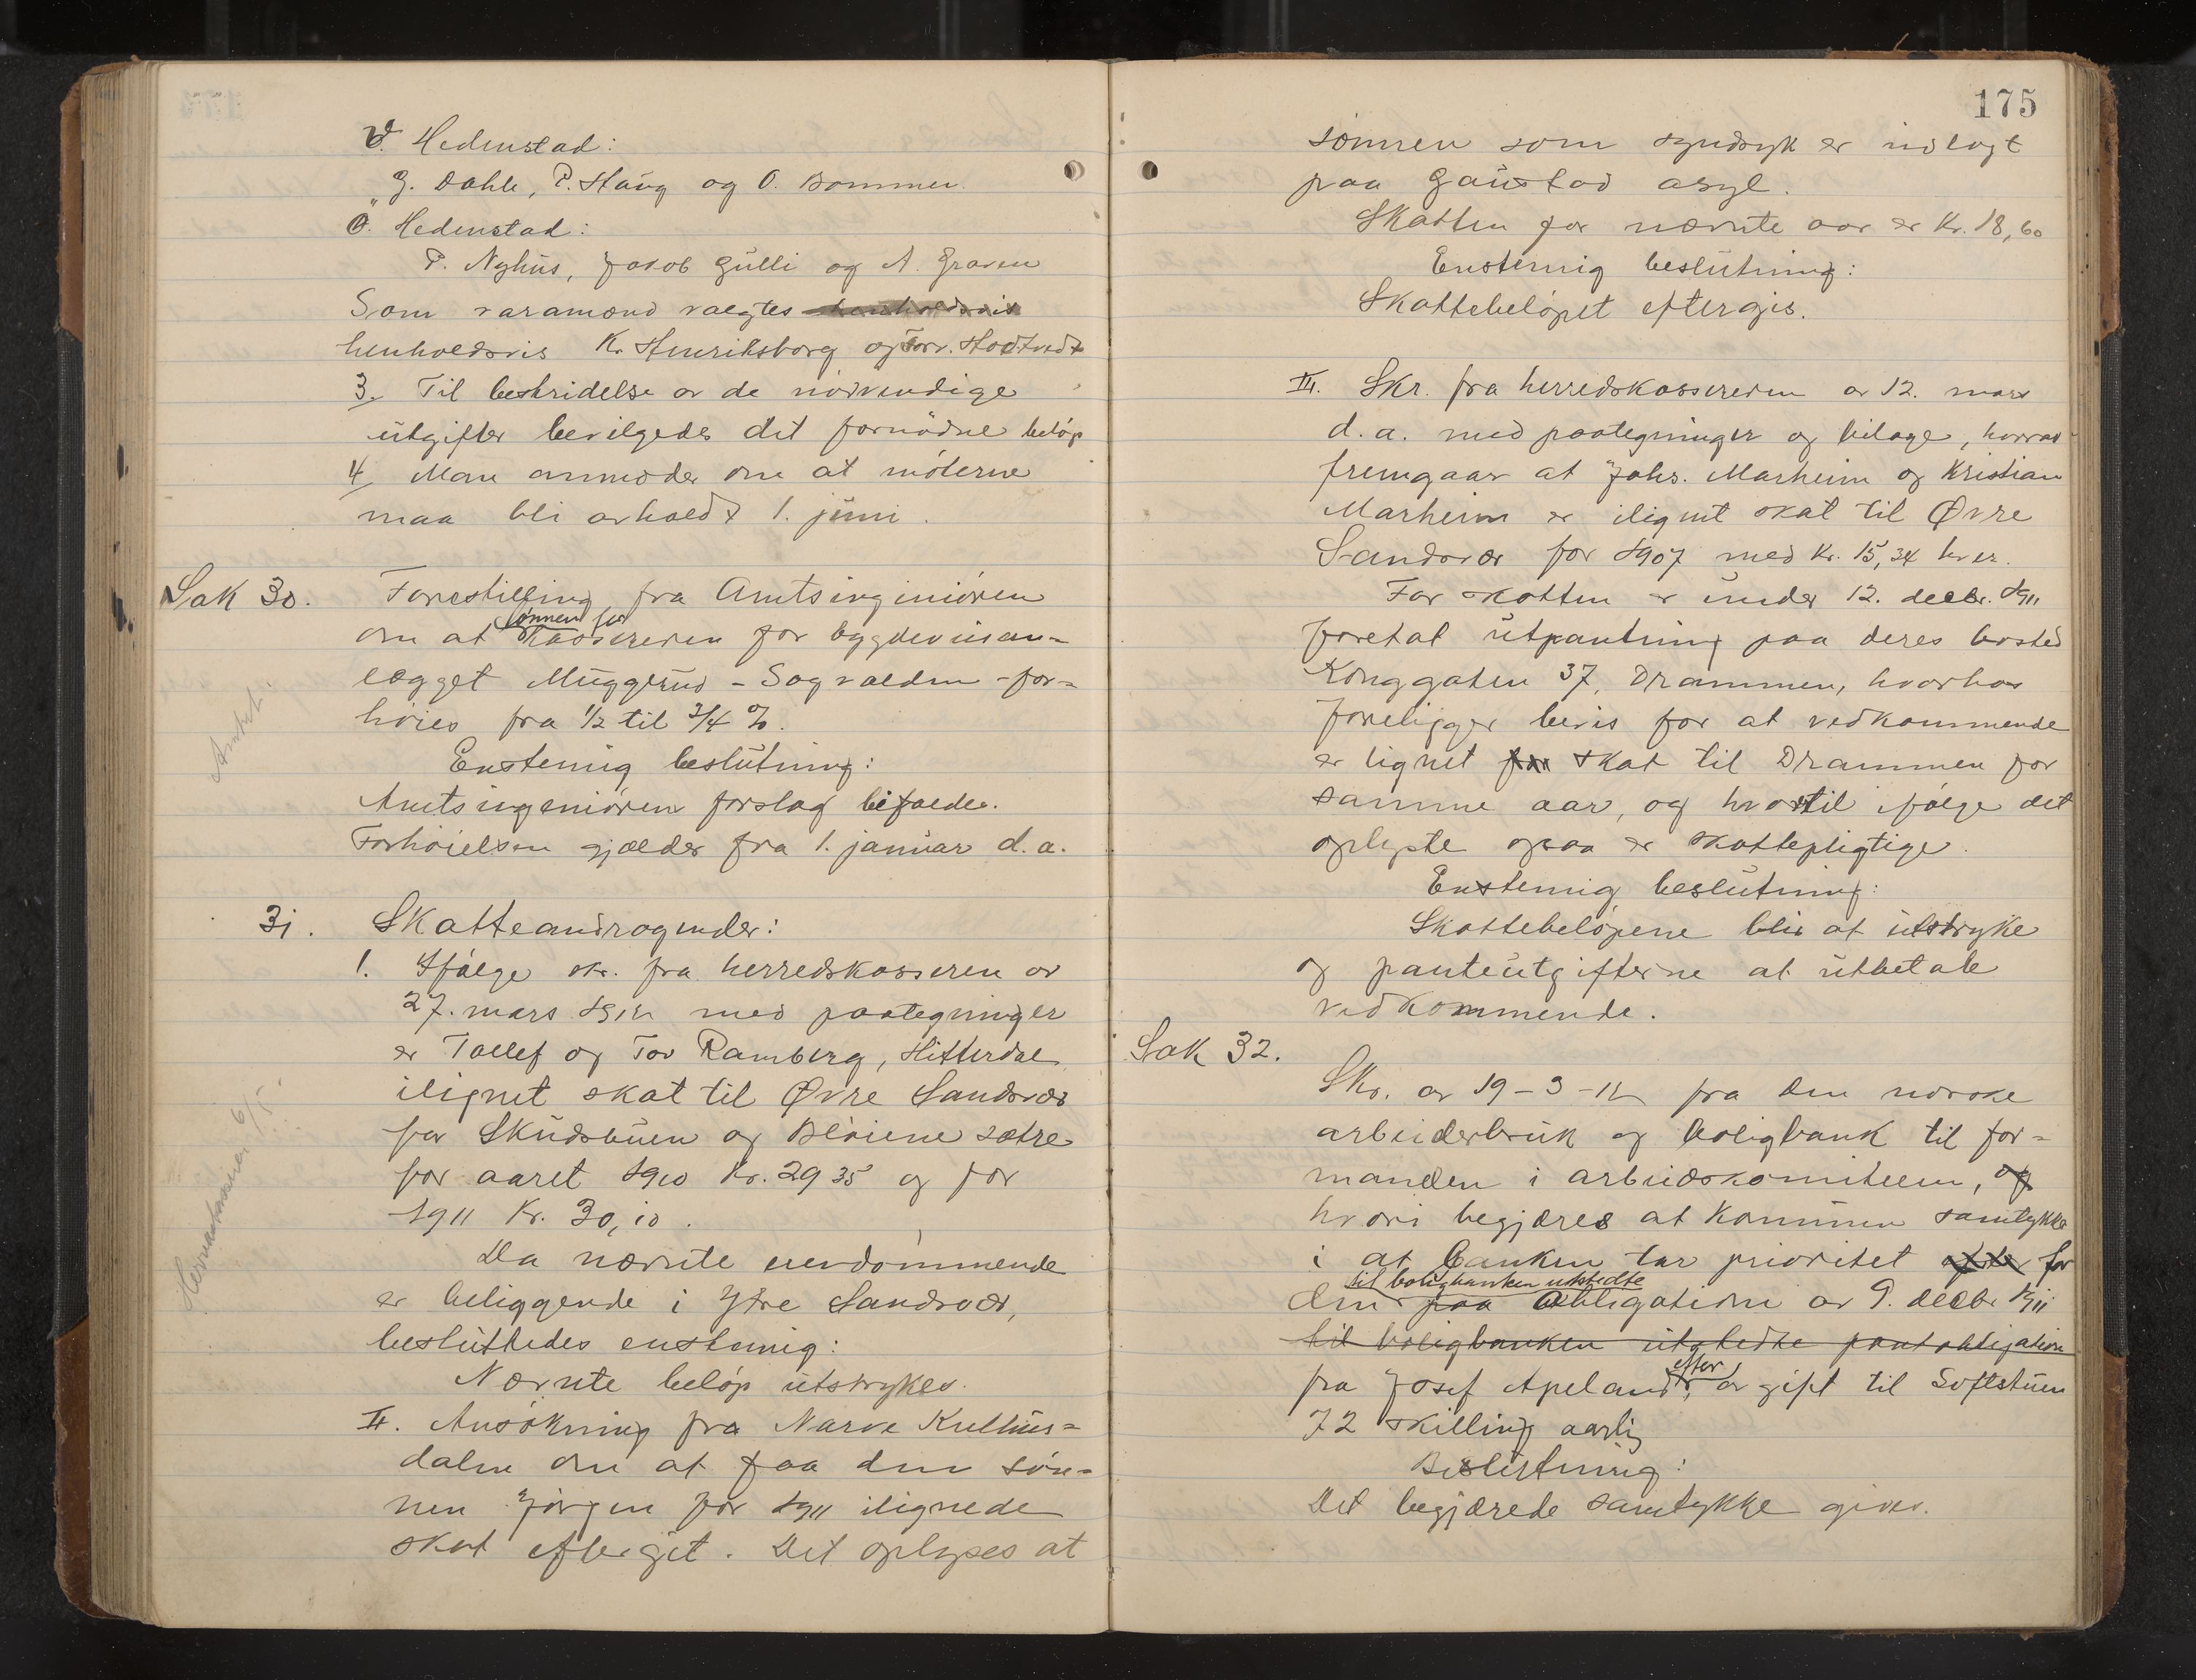 V. Hedenstad:
G. Dahle, P. Haug og O. Bommen.
Ø. Hedenstad:
P. Nyhus, Jakob Gulli og A. Graven
Som varamænd valgtes henholdsvis
henholdsvis K. Henriksborg og Torv. Stodtvedt
3. Til bestridelse av de nødvendige
utgifter bevilgedes det fornødne beløp
4. Man anmoder om at møterne
maa bli avholdt 1. juni.
Sak 30. Forestilling fra Amtsingeniøren
lønnen for
om at kassereren for bygdeveian-
lægget Muggerud - Sagvolden - for-
høies fra 1/2 til 3/4 %.
Amtet.
Enstemig beslutning:
Amtsingeniøren forslag bifaldes.
Forhøielsen gjælder fra 1. januar d. a.
31. Skatteandragender:
1. Ifølge skr. fra herredskasseren av
27. mars 1912 med paategninger
er Tollef og Tov Ramberg, Hitterdal
ilignet skat til Øvre Sandsvær
for Skudsbuen og Bløiene sætre
for aaret 1910 Kr. 29 35 og for
1911 Kr. 30,10.
Herredskasserer 6/5
Da nævnte eiendommende
er beliggende i Ytre Sandsvær,
besluttedes enstemig:
Nævnte beløp utstrykes.
II. Ansøkning fra Narve Kullius-
dalen om at faa den søn-
nen Jørgen for 1911 ilignede
skat eftergit. Det oplyses at
175
sønnen som syndsyk er indlagt
paa Gaustad asyl.
Skatten for nævnte aar er Kr. 18,60
Enstemig beslutning:
Skattebeløpet eftergis.
III. Skr. fra herredskassereren av 12. mars
d. a. med paategninger og bilage, hvorav
fremgaar at Johs. Marheim og Kristian
Marheim er ilignet skat til Øvre
Sandsvær for 1907 med Kr. 15,34 hver.
For skatten er under 12. decbr. 1911
foretat utpantning paa deres bosted
Konggaten 37, Drammen, hvorhos
foreligger bevis for at vedkommende
er lignet for skat til Drammen for
samme aar, og hvortil ifølge det
oplyste ogsaa er skattepligtige.
Enstemig beslutning:
Skattebeløpene blir at utstryke
og panteutgifterne at utbetale
vedkommende.
Sak 32.
Skr. av 19-3-12 fra Den norske
arbeiderbruk og boligbank til for-
manden i arbeidskomiteen, og
hvori begjæres at kommunen samtykke
i at banken tar prioritet efter for
til boligbanken utstedte
den paa obligation av 9. decbr 1911
til boligbanken utstedte pantobligation
fra Josef Apeland, efter avgift til Softstuen
72 skilling aarlig
Beslutning:
Det begjærede samtykke gives.